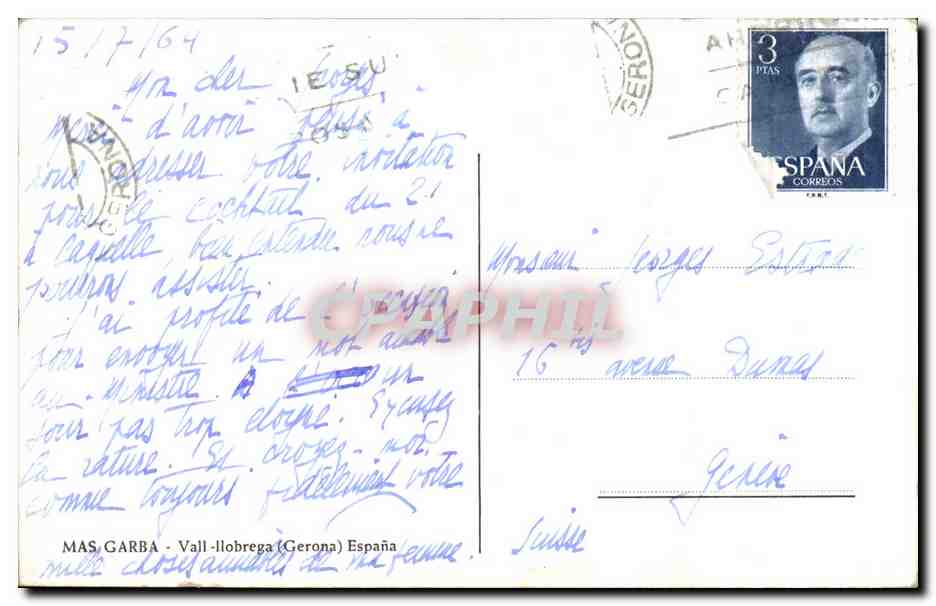 15/7/64
Mon cher Georges,
merci d'avoir pensé à
nous adresser votre invitation
pour le cocktail du 21
à laquelle, bien entendu nous ne
pourrons assister.
J'ai profité de l'occasion
pour envoyer un mot
au Ministre. A un
jour pas trop éloigné. Excusez
la rature. Et croyez-moi
comme toujours fidèlement votre
mille choses aimables de ma femme.
MAS GARBA - Vall-llobrega (Gerona) España
IE SU
GERONA
GERONA
3
PTAS
ESPAÑA
CORREOS
F.N.M.T.
CPAPHIL
Monsieur Georges
16 bis avenue Dumas
Genève
Suisse